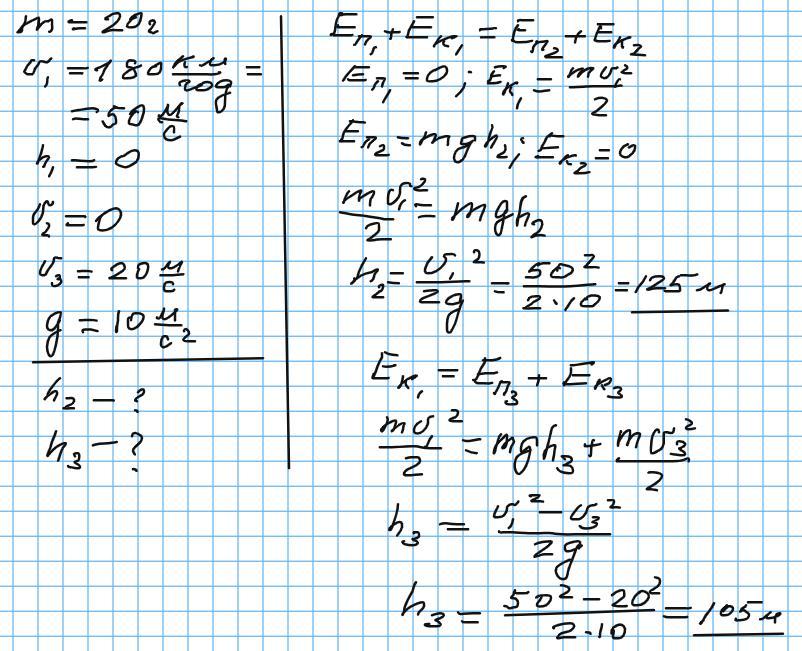 m = 20г
υ₁ = 180 км/год =
= 50 м/с
h₁ = 0
υ₂ = 0
υ₃ = 20 м/с
g = 10 м/с²
h₂ – ?
h₃ – ?
Eп₁ + Eк₁ = Eп₂ + Eк₂
Eп₁ = 0 ; Eк₁ = mυ₁²/2
Eп₂ = mgh₂; Eк₂ = 0
mυ₁²/2 = mgh₂
h₂ = υ₁²/2g = 50²/2·10 = 125 м
Eк₁ = Eп₃ + Eк₃
mυ₁²/2 = mgh₃ + mυ₃²/2
h₃ = υ₁² – υ₃²/2g
h₃ = 50² – 20²/2·10 = 105 м